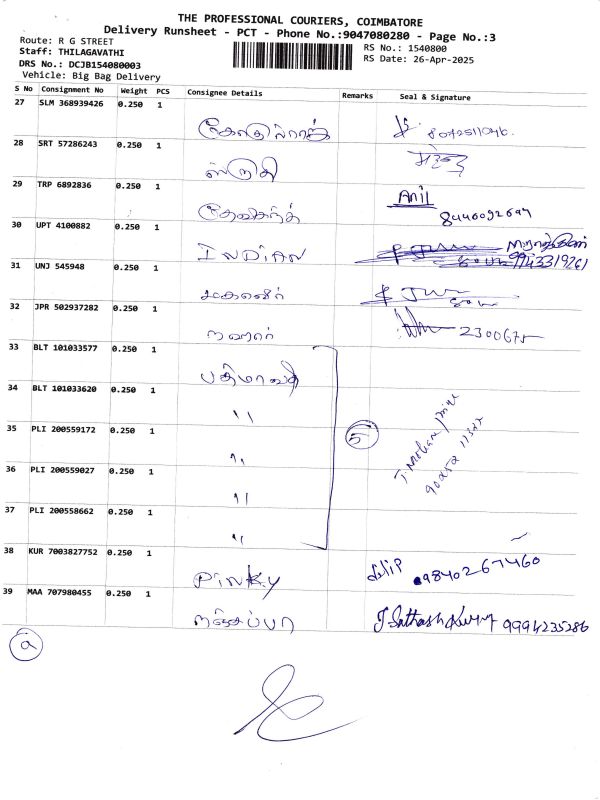 THE PROFESSIONAL COURIERS, COIMBATORE
Delivery Runsheet - PCT - Phone No.:9047080280 - Page No.:3
Route: R G STREET
RS No.: 1540800
Staff: THILAGAVATHI
RS Date: 26-Apr-2025
DRS No.: DCJB154080003
Vehicle: Big Bag Delivery
S No Consignment No Weight PCS Consignee Details Remarks Seal & Signature
27 SLM 368939426 0.250 1
28 SRT 57286243 0.250 1
ஸ்ருதி
29 TRP 6892836 0.250 1
Anil
8446092697
30 UPT 4100882 0.250 1
INDIAN
9943319261
31 UNJ 545948 0.250 1
மகாவீர்
32 JPR 502937282 0.250 1
2300675
33 BLT 101033577 0.250 1
பத்மாவதி
34 BLT 101033620 0.250 1
"
35 PLI 200559172 0.250 1
"
5
36 PLI 200559027 0.250 1
"
37 PLI 200558662 0.250 1
"
38 KUR 7003827752 0.250 1
Pinky dilip 9840267460
39 MAA 707980455 0.250 1
நஞ்சப்பா J. Sathash Kumar 9994235286
a